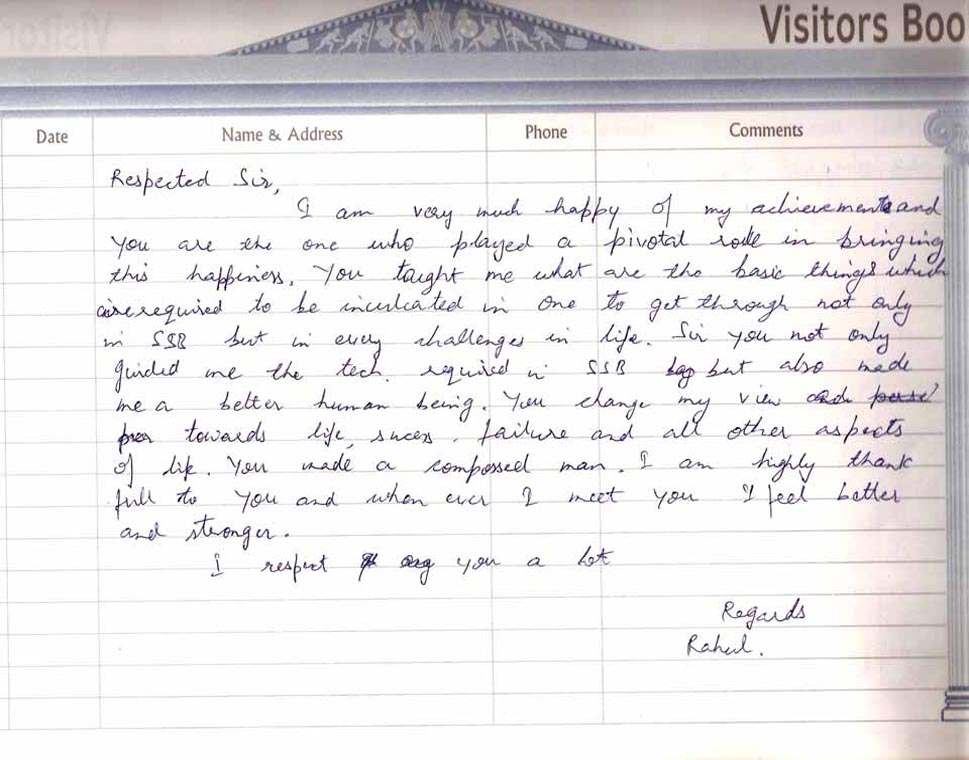 Visitors Boo
Date Name & Address Phone Comments
Respected Sir,
I am very much happy of my achievements and
you are the one who played a pivotal role in bringing
this happiness. You taught me what are the basic things which
are required to be inculcated in one to get through not only
in SSB but in every challenges in life. Sir you not only
guided me the tech. required in SSB but also made
me a better human being. You change my view
towards life, sucess, failure and all other aspects
of life. You made a compossed man. I am highly thank
full to you and when ever I meet you I feel better
and stronger.
I respect you a lot
Regards
Rahul.